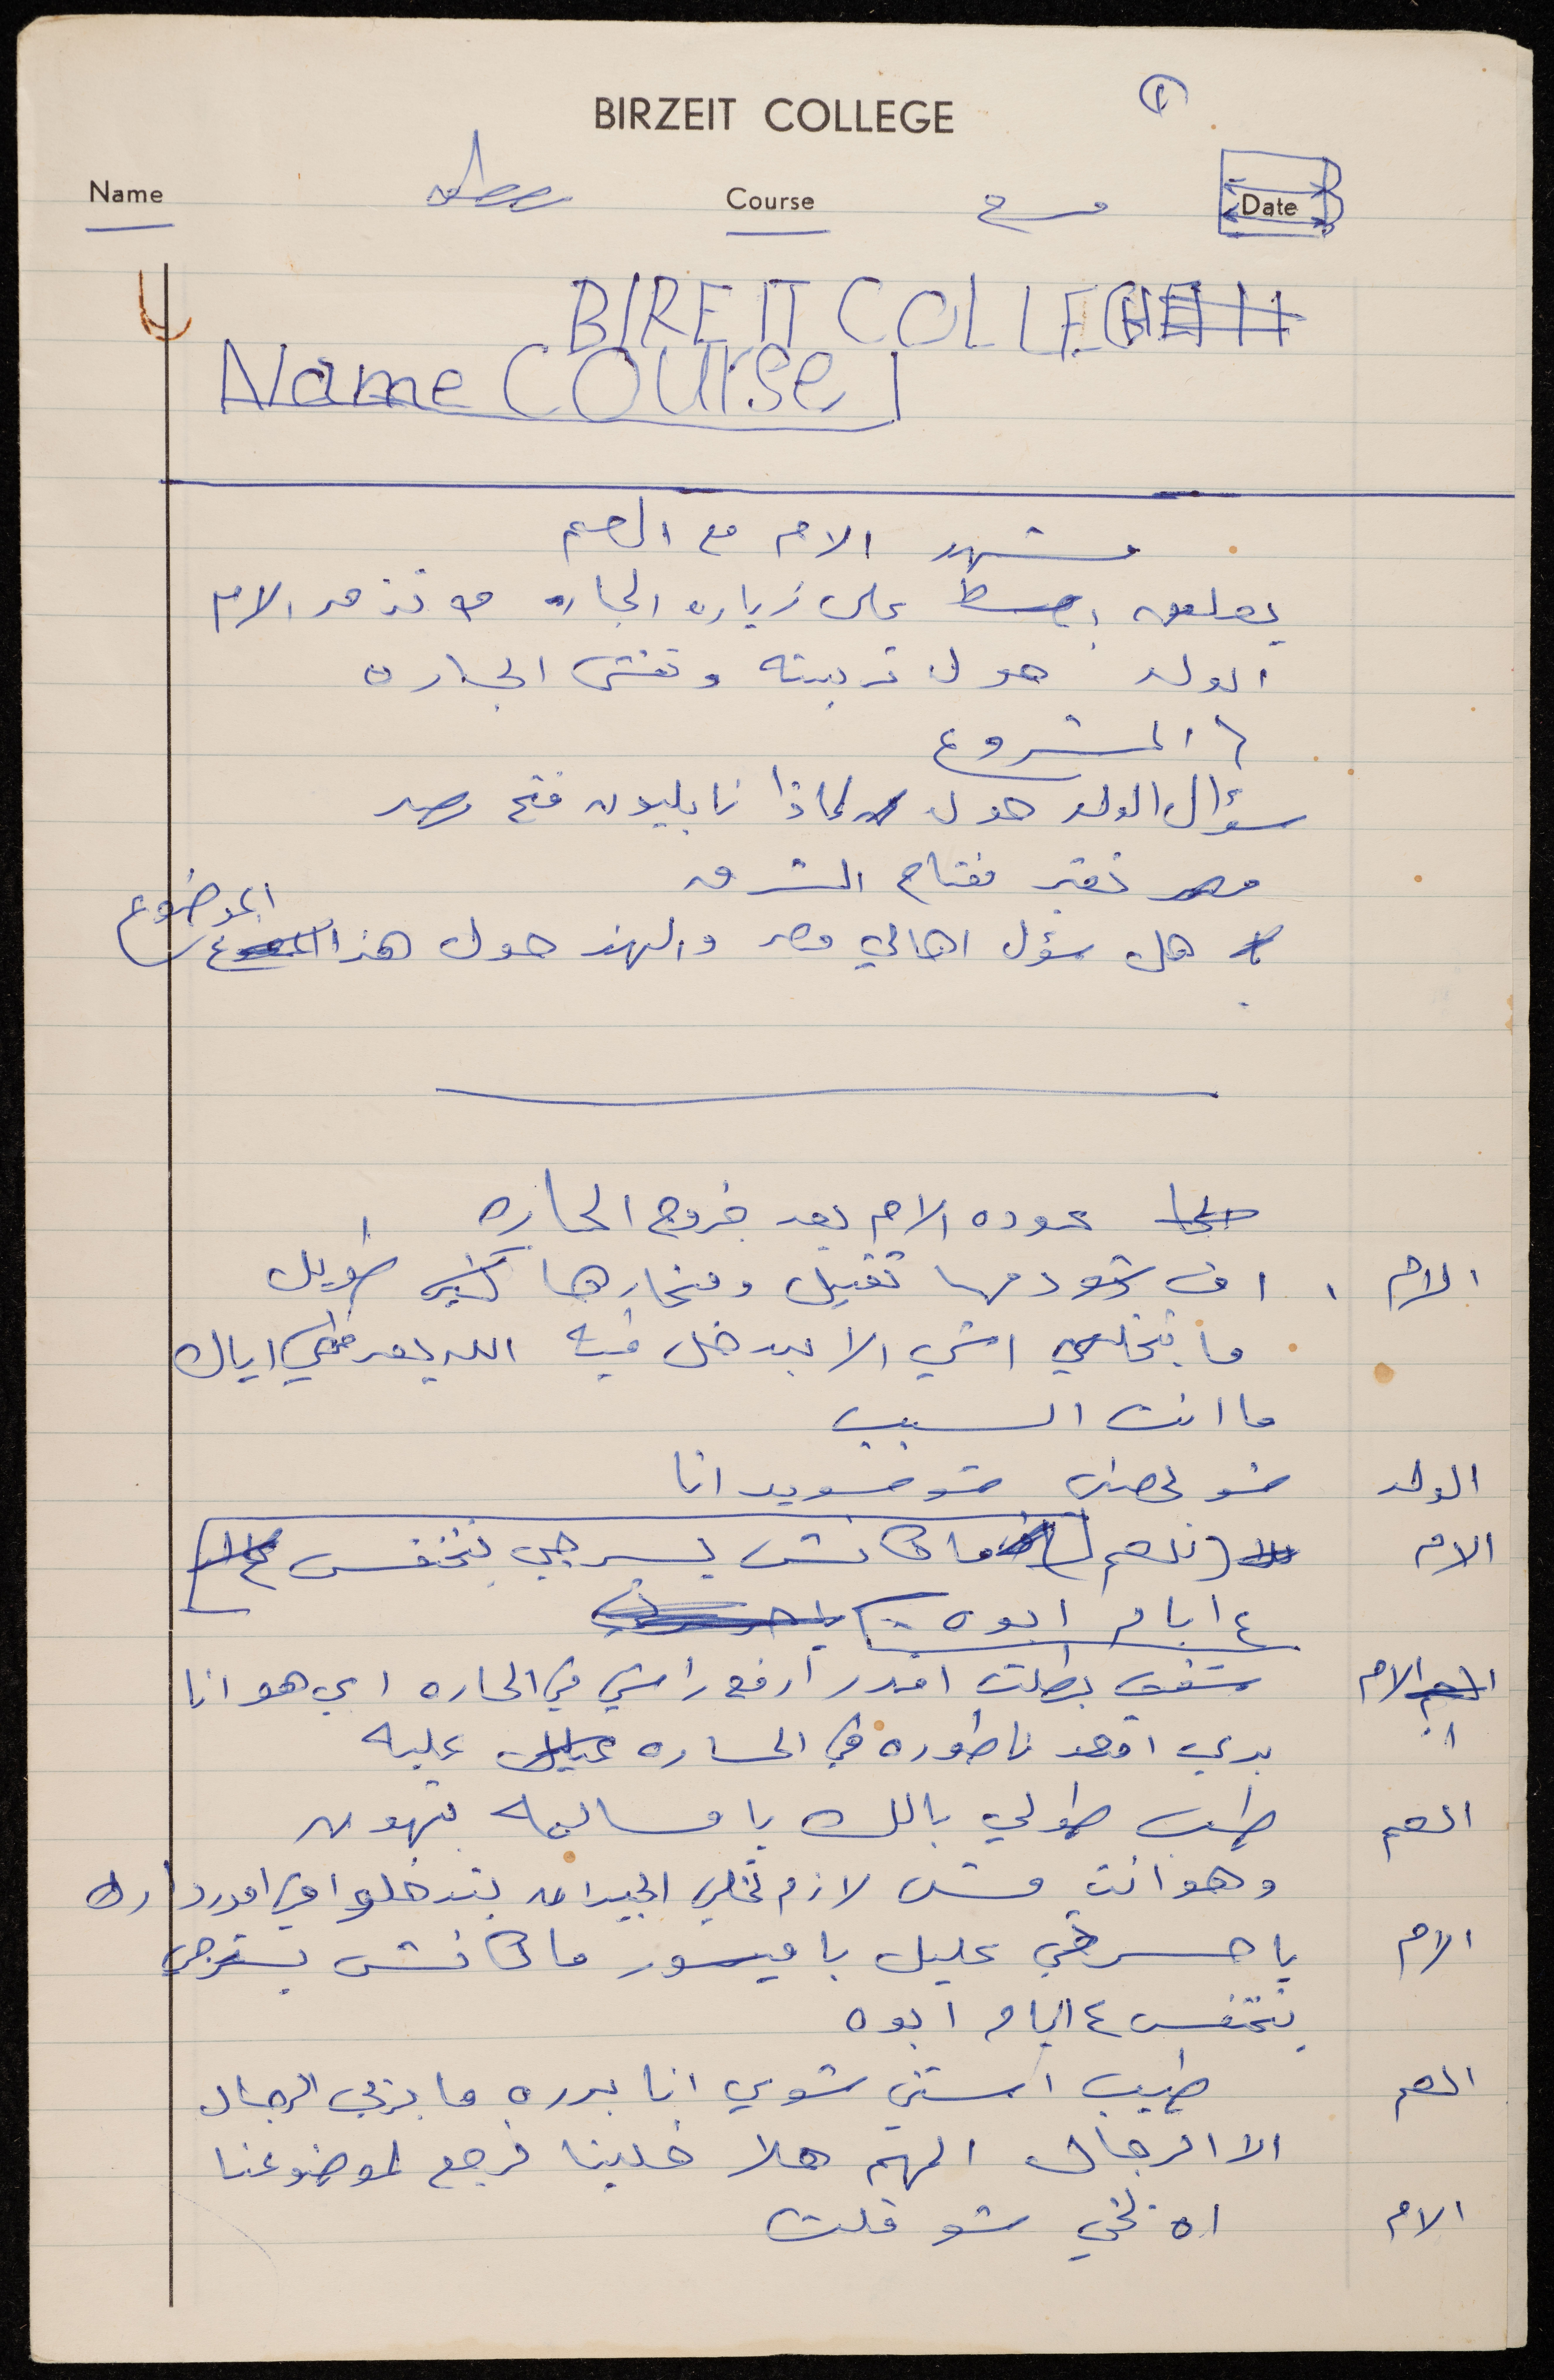 ①
BIRZEIT COLLEGE
Name Course مسرح Date
BIREIT COLLEGE
Name Course
مشهد الام مع العم
يعلق على زياره الجاره تذمر الام
الولد حول تربيته وتفتش الجاره
المشروع
سؤال الولد حول لماذا نابليون فتح مصر
مصر تعتبر مفتاح الشرق
هل سؤل اهالي مصر والهند حول هذا الموضوع
عوده الام بعد خروج الجاره
الام اف شو دمها تقيل ومنخارها كثير طويل
ما بتخلي اشي الا بيدخل فيه الله اياك
ما انت السبب
الولد شو خصني شو مسويد انا
الام (للعم) ما كانش يسترجي يتنفس
ع ايام ابوه
الام شفت بطلت اقدر ارفع راسي في الحاره اي هو انا
بدي اقعد ناطوره في الحاره عليه
العم طيب طولي بالك يا مسالمه بتهون
وهو انت مش لازم تخلي الجيران يتدخلوا في امور دارك
الام يا حسرتي عليك يا ميسور ما كانش يسترجي
يتنفس ع ايام ابوه
العم طيب استني شوي انا بدره ما بربي الرجال
الا الرجال المهم هلا خلينا نرجع لموضوعنا
الام اه شو قلت